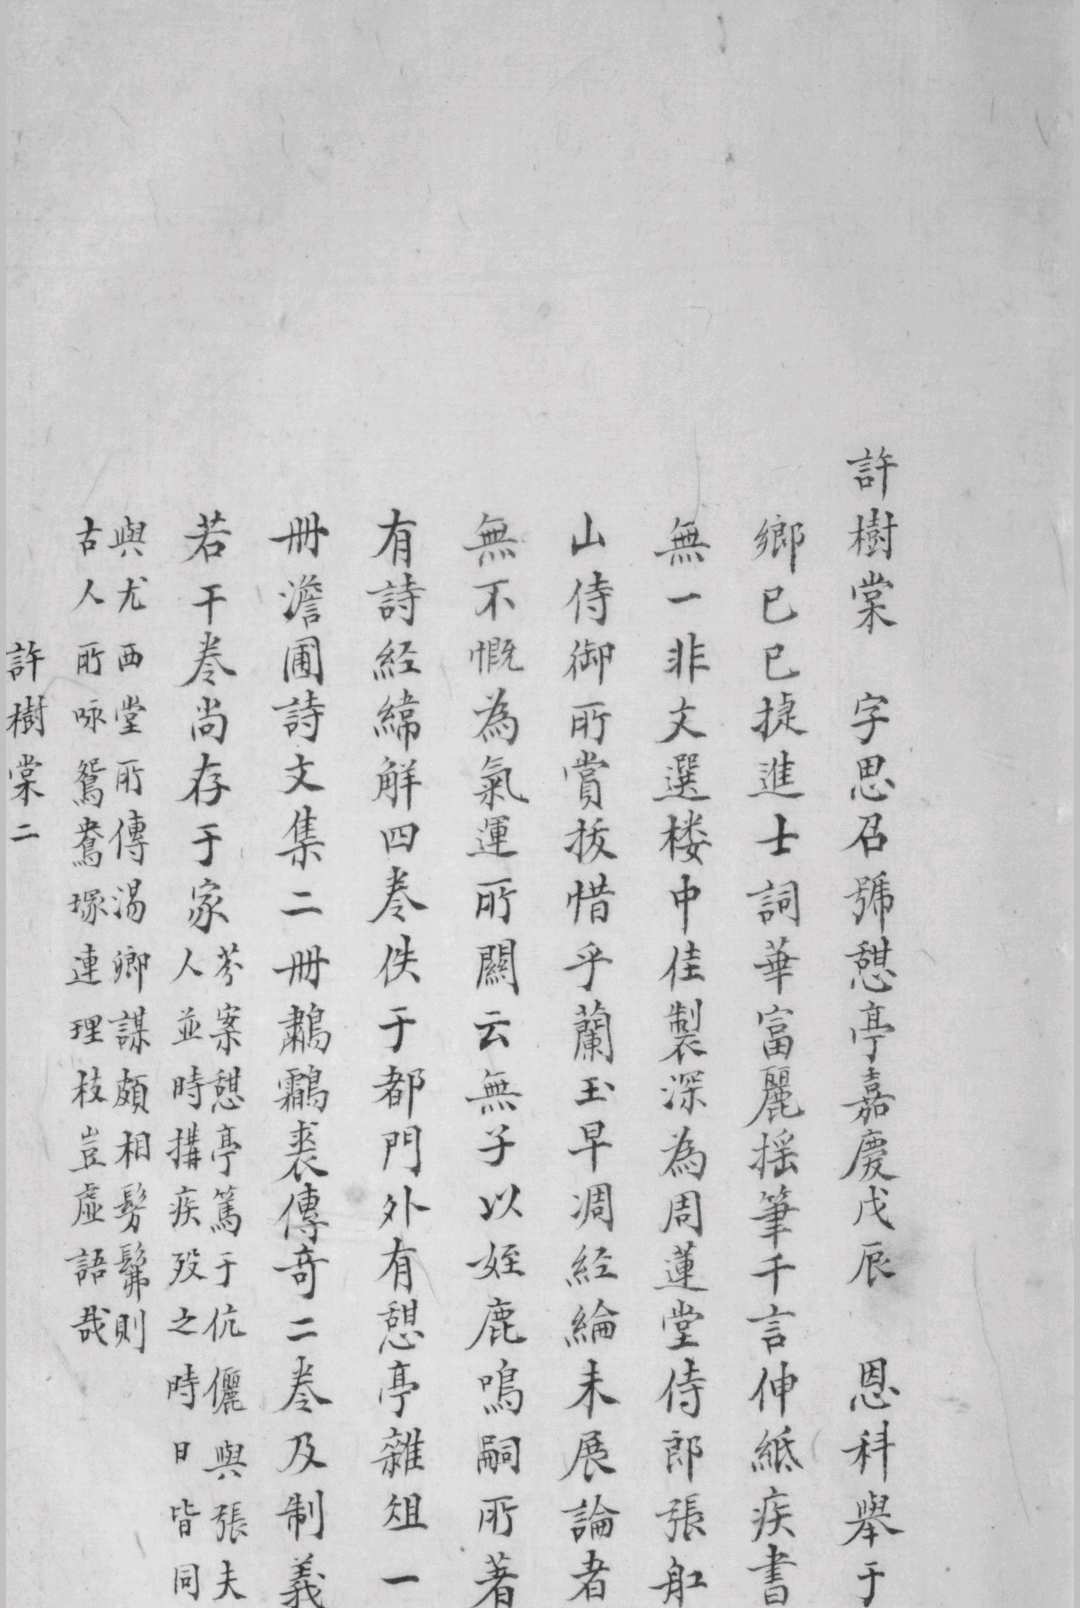 許樹棠　字思召號憇亭嘉慶戊辰　恩科舉于
鄉已巳捷進士詞華富麗搖筆千言伸紙疾書
無一非文選楼中佳製深為周蓮堂侍郎張船
山侍御所賞拔惜乎蘭玉早凋経綸未展論者
無不慨為氣運所關云無子以姪鹿鳴嗣所著
有詩経緯解四卷佚于都門外有憇亭雜俎一
冊澹圃詩文集二冊鷫鸘裘傳奇二卷及制義
若干卷尚存于家
芬案憇亭篤于伉儷與張夫
人並時搆疾歿之時日皆同
與尤西堂所傳湯卿謀頗相髣髴則
古人所咏鴛鴦塚連理枝豈虛語哉
許樹棠二